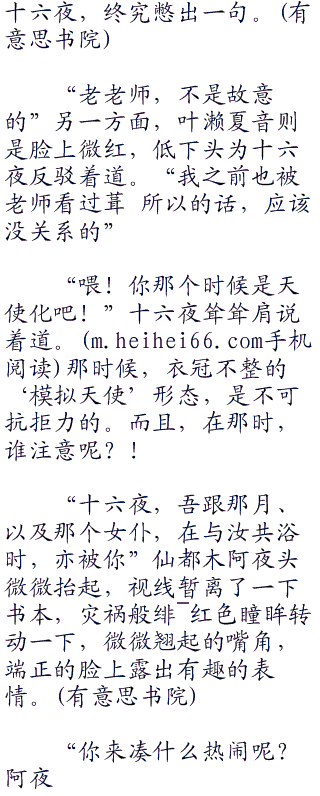 十六夜，终究憋出一句。(有
意思书院)
“老老师，不是故意
的”另一方面，叶濑夏音则
是脸上微红，低下头为十六
夜反驳着道。“我之前也被
老师看过葺 所以的话，应该
没关系的”
“喂！你那个时候是天
使化吧！”十六夜耸耸肩说
着道。(m.heihei66.com手机
阅读)那时候，衣冠不整的
‘模拟天使’形态，是不可
抗拒力的。而且，在那时，
谁注意呢？！
“十六夜，吾跟那月、
以及那个女仆，在与汝共浴
时，亦被你”仙都木阿夜头
微微抬起，视线暂离了一下
书本，灾祸般绯¯红色瞳眸转
动一下，微微翘起的嘴角，
端正的脸上露出有趣的表
情。(有意思书院)
“你来凑什么热闹呢？
阿夜